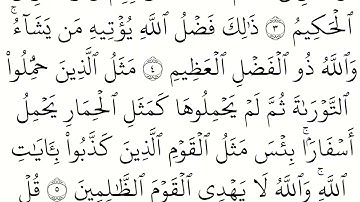 ٱلْحَكِيمُ ٣ ذَٰلِكَ فَضْلُ ٱللَّهِ يُؤْتِيهِ مَن يَشَآءُۚ
وَٱللَّهُ ذُو ٱلْفَضْلِ ٱلْعَظِيمِ ٤ مَثَلُ ٱلَّذِينَ حُمِّلُوا۟
ٱلتَّوْرَىٰةَ ثُمَّ لَمْ يَحْمِلُوهَا كَمَثَلِ ٱلْحِمَارِ يَحْمِلُ
أَسْفَارًۢاۚ بِئْسَ مَثَلُ ٱلْقَوْمِ ٱلَّذِينَ كَذَّبُوا۟ بِـَٔايَـٰتِ
ٱللَّهِۚ وَٱللَّهُ لَا يَهْدِى ٱلْقَوْمَ ٱلظَّـٰلِمِينَ ٥ قُلْ